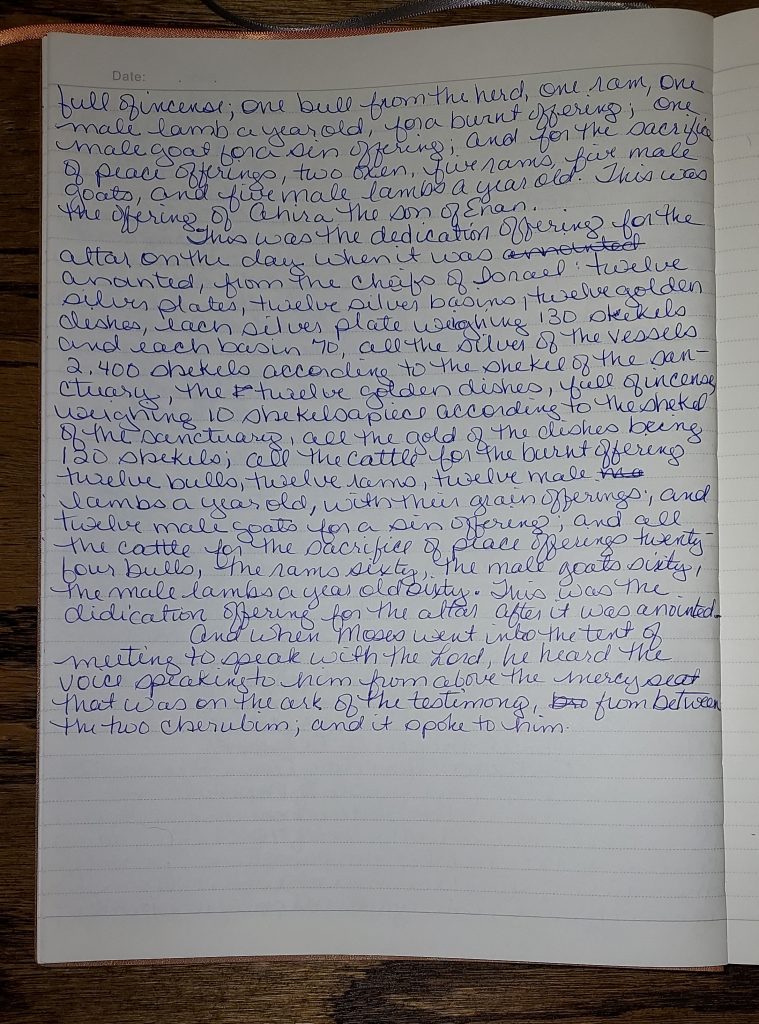 Date:
full of incense; one bull from the herd, one ram, one
male lamb a year old, for a burnt offering; one
male goat for a sin offering; and for the sacrifice
of peace offerings, two oxen, five rams, five male
goats, and five male lambs a year old. This was
the offering of Ahira the son of Enan.
This was the dedication offering for the
altar on the day when it was annointed
anointed, from the cheifs of Israel: twelve
silver plates, twelve silver basins, twelve golden
dishes, each silver plate weighing 130 shekels
and each basin 70, all the silver of the vessels
2,400 shekels according to the shekel of the san-
ctuary, the twelve golden dishes, full of incense,
weighing 10 shekels apiece according to the shekel
of the sanctuary, all the gold of the dishes being
120 shekels; all the cattle for the burnt offering
twelve bulls, twelve rams, twelve male ma
lambs a year old, with their grain offerings; and
twelve male goats for a sin offering; and all
the cattle for the sacrifice of peace offerings twenty-
four bulls, the rams sixty, the male goats sixty,
the male lambs a year old sixty. This was the
didication offering for the altar after it was anointed.
And when Moses went into the tent of
meeting to speak with the Lord, he heard the
voice speaking to him from above the mercy seat
that was on the ark of the testimony, from between
the two cherubim; and it spoke to him.